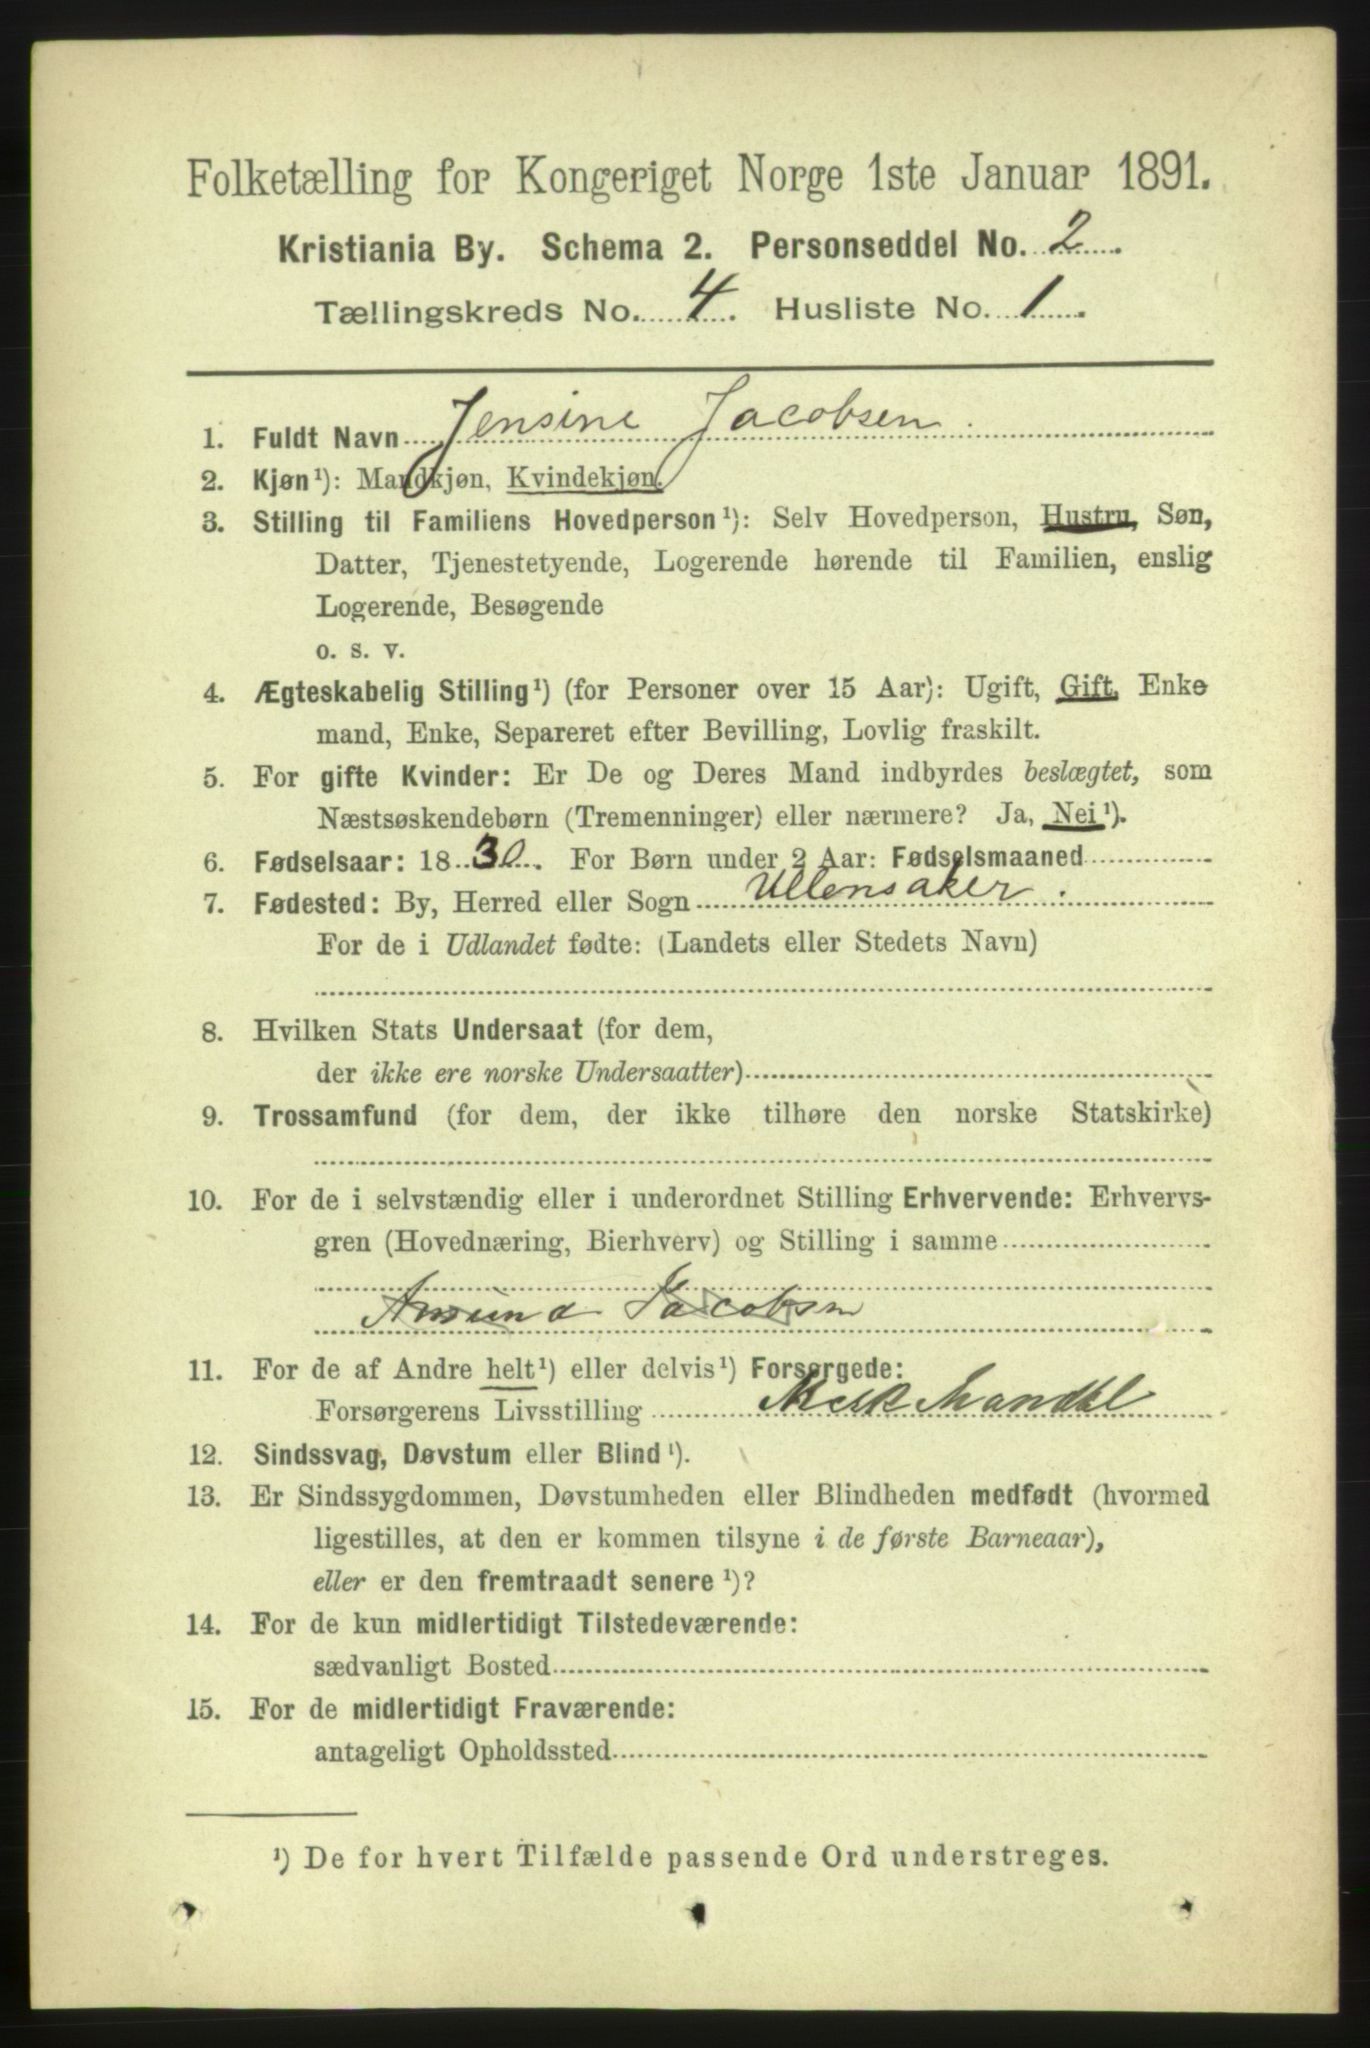 Folketælling for Kongeriget Norge 1ste Januar 1891.
Kristiania By. Schema 2. Personseddel No. 2.
Tællingskreds No. 4. Husliste No. 1.
1. Fuldt Navn Jensine Jacobsen.
2. Kjøn¹): Mandkjøn, Kvindekjøn.
3. Stilling til Familiens Hovedperson¹): Selv Hovedperson, Hustru, Søn,
Datter, Tjenestetyende, Logerende hørende til Familien, enslig
Logerende, Besøgende
o. s. v.
4. Ægteskabelig Stilling¹) (for Personer over 15 Aar): Ugift, Gift, Enke
mand, Enke, Separeret efter Bevilling, Lovlig fraskilt.
5. For gifte Kvinder: Er De og Deres Mand indbyrdes beslægtet, som
Næstsøskendebørn (Tremenninger) eller nærmere? Ja, Nei¹).
6. Fødselsaar: 1830. For Børn under 2 Aar: Fødselsmaaned
7. Fødested: By, Herred eller Sogn Ullensaker.
For de i Udlandet fødte: (Landets eller Stedets Navn)
8. Hvilken Stats Undersaat (for dem,
der ikke ere norske Undersaatter)
9. Trossamfund (for dem, der ikke tilhøre den norske Statskirke)
10. For de i selvstændig eller i underordnet Stilling Erhvervende: Erhvervs-
gren (Hovednæring, Bierhverv) og Stilling i samme
Amund Jacobsen
11. For de af Andre helt¹) eller delvis¹) Forsørgede:
Forsørgerens Livsstilling
12. Sindssvag, Døvstum eller Blind¹).
13. Er Sindssygdommen, Døvstumheden eller Blindheden medfødt (hvormed
ligestilles, at den er kommen tilsyne i de første Barneaar),
eller er den fremtraadt senere¹)?
14. For de kun midlertidigt Tilstedeværende:
sædvanligt Bosted
15. For de midlertidigt Fraværende:
antageligt Opholdssted
¹) De for hvert Tilfælde passende Ord understreges.